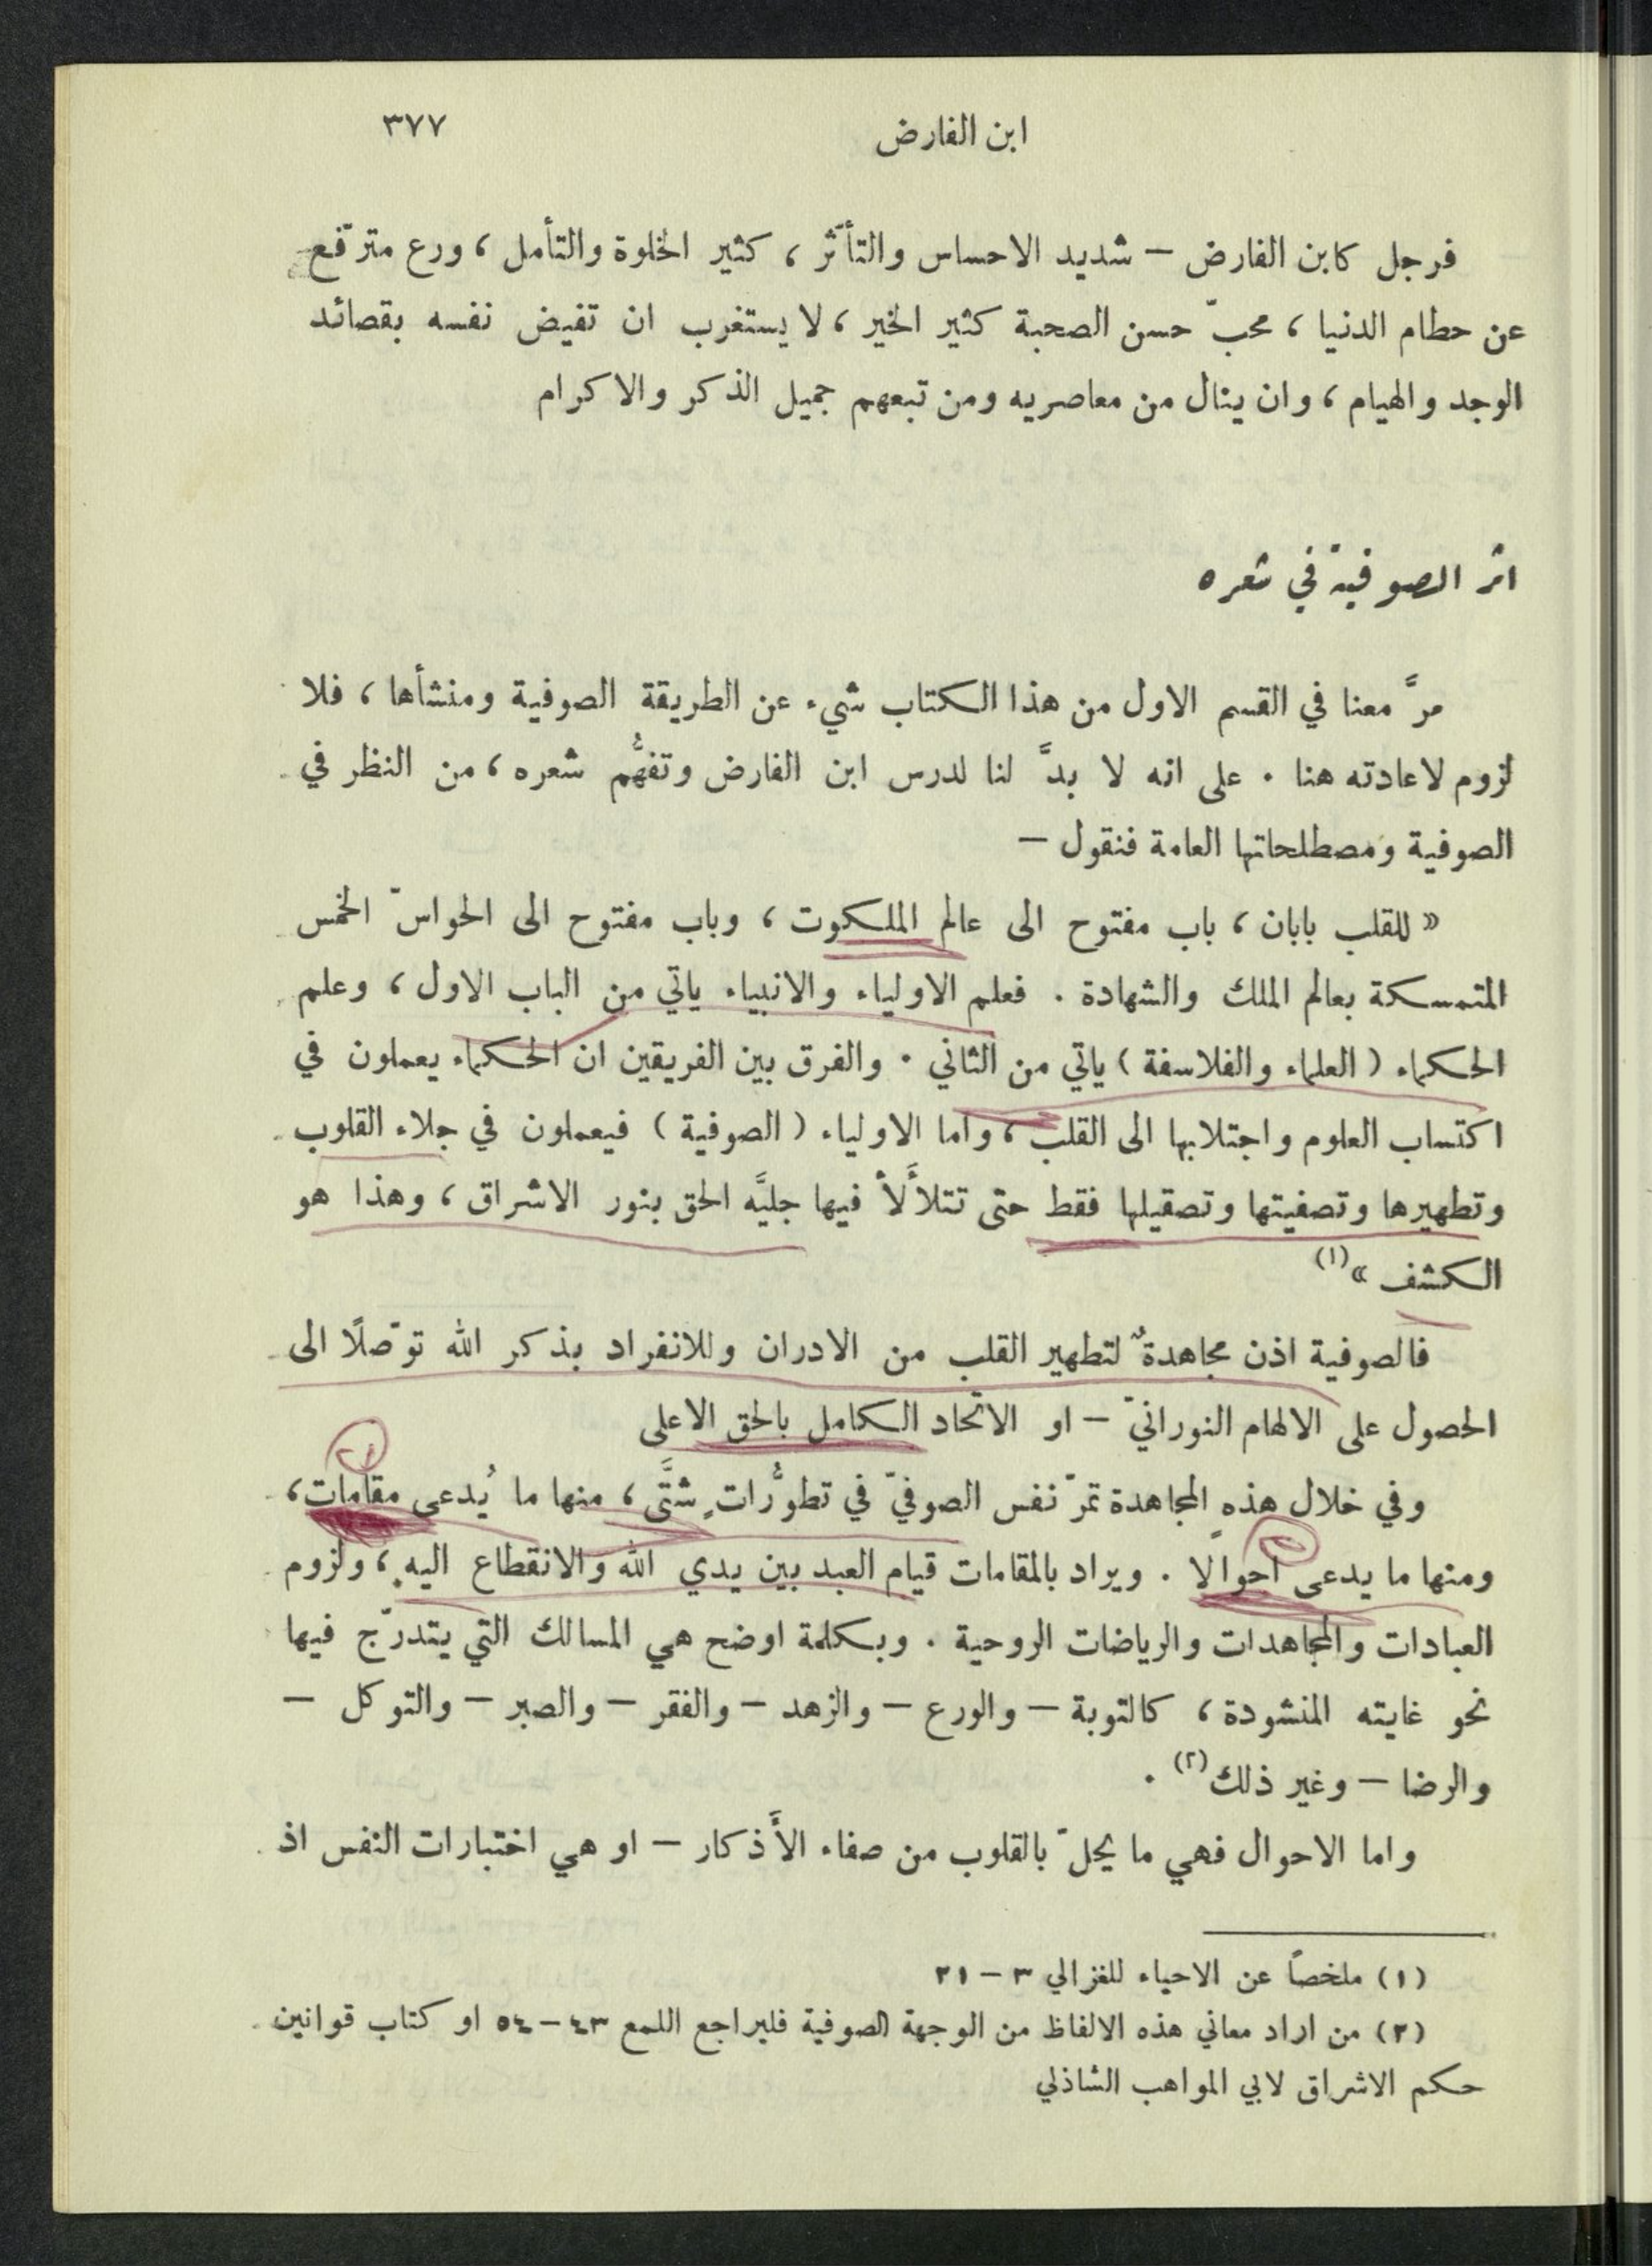 ابن الفارض ٣٧٧
فرجل كابن الفارض – شديد الاحساس والتأثّر ، كثير الخلوة والتأمل ، ورع مترفّع
عن حطام الدنيا ، محبّ حسن الصحبة كثير الخير ، لا يستغرب ان تفيض نفسه بقصائد
الوجد والهيام ، وان ينال من معاصريه ومن تبعهم جميل الذكر والاكرام
اثر الصوفيّة في شعره
مرَّ معنا في القسم الاول من هذا الكتاب شيء عن الطريقة الصوفية ومنشأها ، فلا
لزوم لاعادته هنا . على انه لا بدَّ لنا لدرس ابن الفارض وتفهُّم شعره ، من النظر في
الصوفية ومصطلحاتها العامة فنقول –
« للقلب بابان ، باب مفتوح الى عالم الملكوت ، وباب مفتوح الى الحواسّ الخمس
المتمسكة بعالم الملك والشهادة . فعلم الاولياء والانبياء ياتي من الباب الاول ، وعلم
الحكماء ( العلماء والفلاسفة ) ياتي من الثاني . والفرق بين الفريقين ان الحكماء يعملون في
اكتساب العلوم واجتلابها الى القلب ، واما الاولياء ( الصوفية ) فيعملون في جلاء القلوب
وتطهيرها وتصفيتها وتصقيلها فقط حتى تتلألَأ فيها جليَّه الحق بنور الاشراق ، وهذا هو
الكشف »(١)
فالصوفية اذن مجاهدةٌ لتطهير القلب من الادران وللانفراد بذكر الله توصّلًا الى
الحصول على الالهام النورانيّ – او الاتحاد الكامل بالحق الاعلى
وفي خلال هذهِ المجاهدة تمرّ نفس الصوفيّ في تطوُّراتٍ شتَّى ، منها ما يُدعى مقامات ،
ومنها ما يدعى احوالا . ويراد بالمقامات قيام العبد بين يدي الله والانقطاع اليهِ ، ولزوم
العبادات والمجاهدات والرياضات الروحية . وبكلمة اوضح هي المسالك التي يتدرّج فيها
نحو غايته المنشودة ، كالتوبة – والورع – والزهد – والفقر – والصبر – والتوكل –
والرضا – وغير ذلك(٢) .
واما الاحوال فهي ما يحلّ بالقلوب من صفاء الأَذكار – او هي اختبارات النفس اذ
(١) ملخصاً عن الاحياء للغزالي ٣ – ٢١
(٢) من اراد معاني هذه الالفاظ من الوجهة الصوفية فليراجع اللمع ٤٣ – ٥٤ او كتاب قوانين
حكم الاشراق لابي المواهب الشاذلي